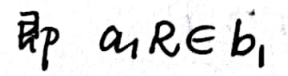 即 a₁R∈b₁